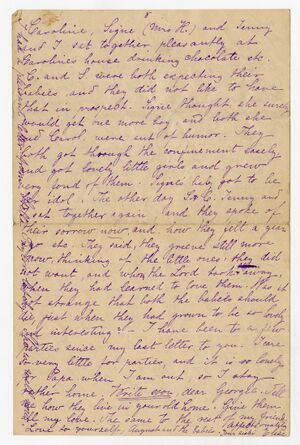 8
Caroline, Signe (Mrs H.) and Jenny
and I sat together pleasantly at
Caroline's house drinking chocolate etc.
C. and S. were both expecting their
babies and they did not like to have
that in prospect. Signe thought she surely
would get one more boy, and both she
and Carol. were out of humor. They
both got through the confinement easely
and got lovely little girls and grew
very fond of them. Signe's baby got to be
her idol. The other day S. C. Jenny and
I sat together again, and they spoke of
their sorrow now, and how they felt a year
ago etc. They said, they grieve still more
now, thinking of the little ones they did
not want and whom the Lord took away
when they had learned to love them. Was it
not strange that both the babies should
die just when they had grown to be so lovely
and interesting? - I have been to a few
parties since my last letter to you. I care
so very little for parties, and it is so lonely
for Papa when I am out, so I stay
rather home. Write soon dear Georgie. Tell
me how they live in your old home. Give them
all my love. The same to the rest of my friends.
Love to yourself, August and the babies